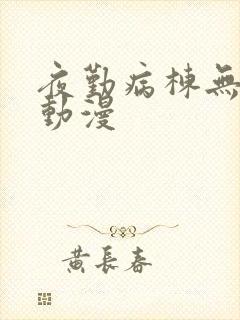 夜勤病棟無
動漫
黄長春